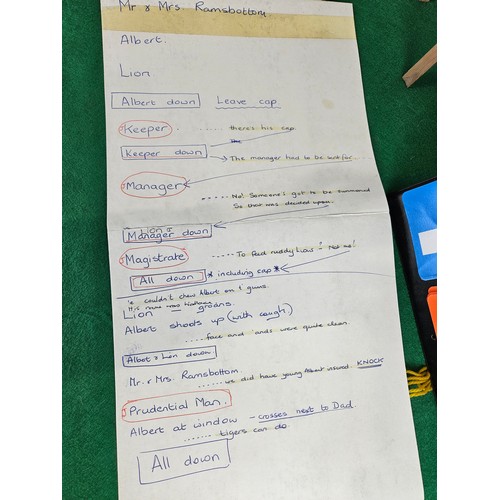 Mr & Mrs. Ramsbottom.
Albert.
Lion
Albert down Leave cap
Keeper ...... there's his cap.
Keeper down
The manager had to be sent for
Manager
...... No! Someone's got to be summoned
So that was decided upon
Lion &
Manager down
Magistrate ...... To feed ruddy Lions? Not me!
All down * including cap *
'e couldn't chew Albert on 't' gums.
Lion groans.
Albert shoots up (with cough)
...... face and 'ands were quite clean.
Albert & Lion down.
Mr. & Mrs. Ramsbottom.
...... we did have young Albert insured. KNOCK
Prudential Man.
Albert at window - crosses next to Dad.
....... tigers can do.
All down